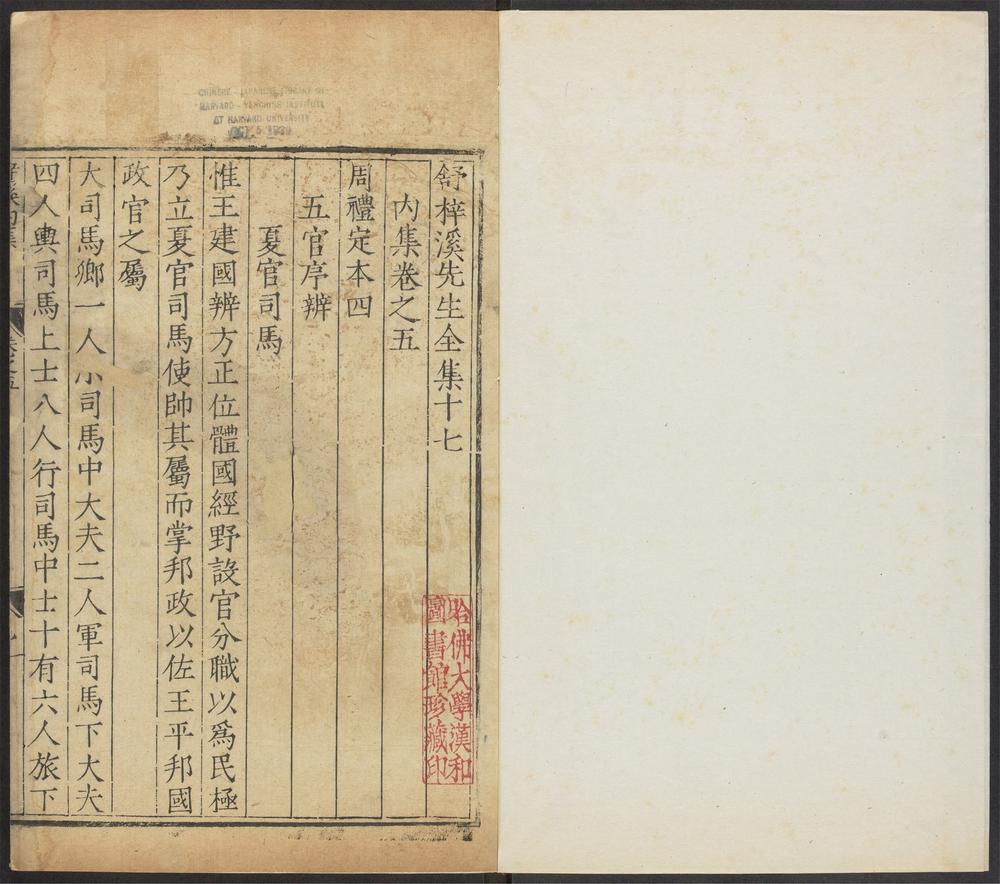 舒梓溪先生全集十七
內集卷之五
周禮定本四
五官序辨
夏官司馬
惟王建國辨方正位體國經野設官分職以爲民極
乃立夏官司馬使帥其屬而掌邦政以佐王平邦國
政官之屬
大司馬鄉一人小司馬中大夫二人軍司馬下大夫
四人輿司馬上士八人行司馬中士十有六人旅下
哈佛大學漢和
圖書館珍藏印
CHINESE - JAPANESE LIBRARY OF
HARVARD - YENCHING INSTITUTE
AT HARVARD UNIVERSITY